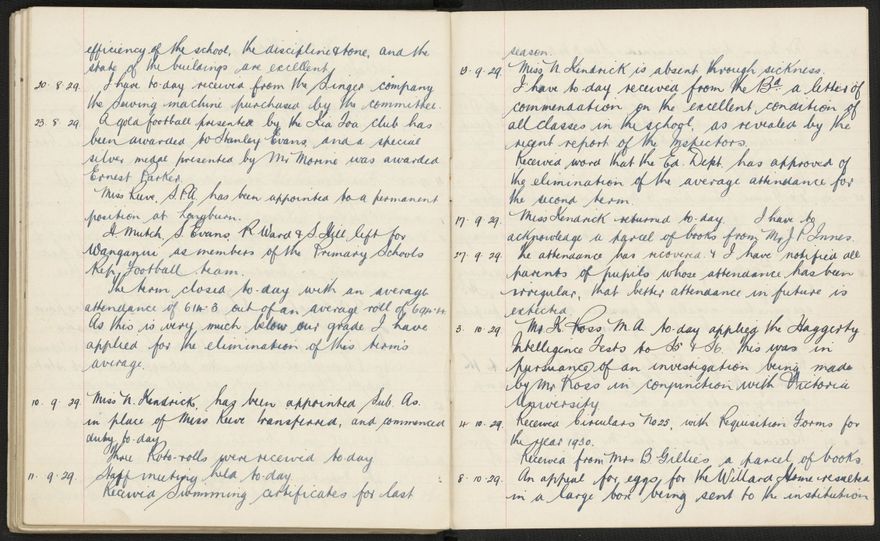 efficiency of the school, the discipline & tone, and the
state of the buildings are excellent.
20.8.29. I have to-day received from the Singer company
the Sewing machine purchased by the committee.
23.8.29. A gold football presented by the Kia Toa club has
been awarded to Stanley Evans, and a special
silver medal presented by Mr Morine was awarded
Ernest Parker.
Miss Reeve, S.P.A. has been appointed to a permanent
position at Longburn.
H Mutch, S Evans, R Ward & S Gill left for
Wanganui as members of the Primary Schools
Rep. Football team.
The term closed to-day with an average
attendance of 614.3 out of an average roll of
As this is very much below our grade I have
applied for the elimination of this term's
average.
10.9.29. Miss N. Kendrick, has been appointed Sub. As.
in place of Miss Reeve transferred, and commenced
duty to-day
Three Roto-rolls were received to-day
11.9.29. Staff meeting held to-day.
Received Swimming certificates for last
season.
13.9.29. Miss N. Kendrick is absent through sickness.
I have to-day received from the Bd. a letter of
commendation on the excellent condition of
all classes in the school, as revealed by the
recent report of the Inspectors.
Received word that the Ed. Dept. has approved of
the elimination of the average attendance for
the second term.
17.9.29. Miss Kendrick returned to-day. I have to
acknowledge a parcel of books from Mr J.P. Innes.
27.9.29. The attendance has recovered & I have notified all
parents of pupils whose attendance has been
irregular, that better attendance in future is
expected.
3.10.29. Mr. K. Ross M.A. to-day applied the Haggerty
Intelligence Tests to S5 & S6. This was in
pursuance of an investigation being made
by Mr Ross in conjunction with Victoria
University
4.10.29. Received Circulars No 25, with Requisition Forms for
the year 1930.
Received from Mrs B. Gillies a parcel of books.
8.10.29. An appeal for eggs for the Willard Home resulted
in a large box being sent to the institution